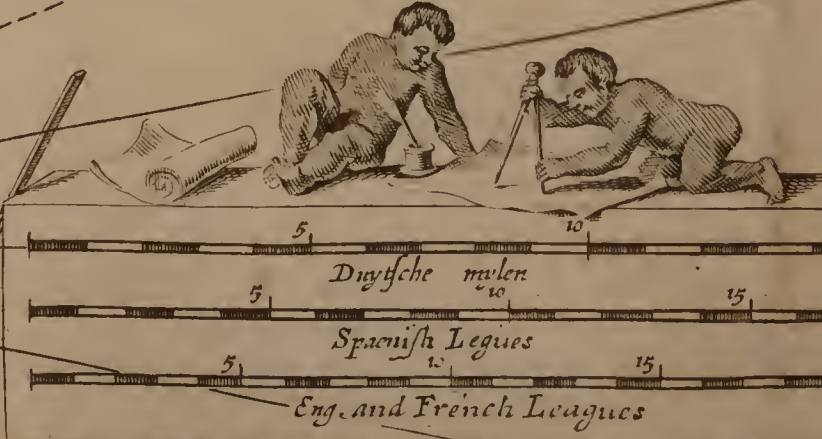 5 10
Duytsche mylen
5 10 15
Spaenish Legues
5 10 15
Eng. and French Leagues